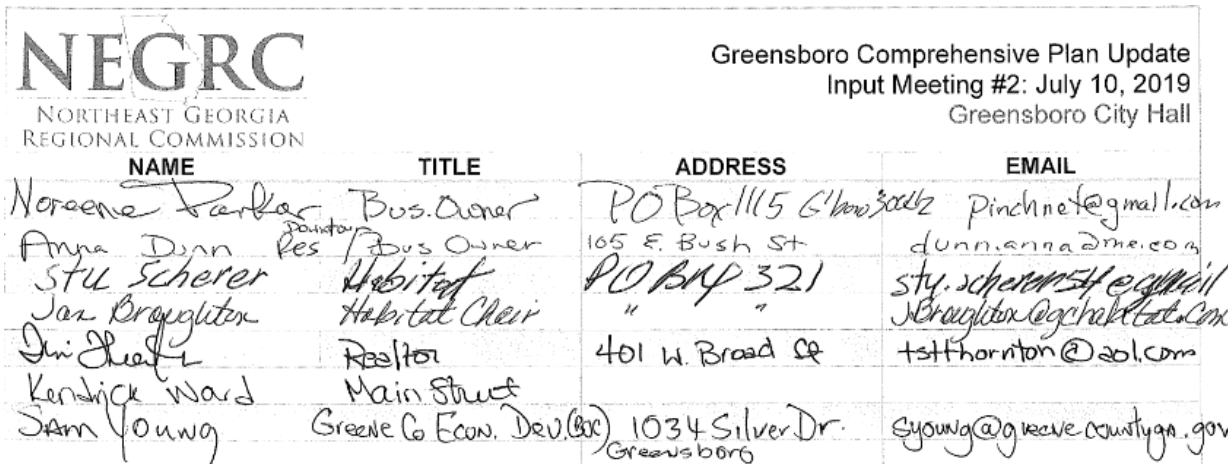 NEGRC
NORTHEAST GEORGIA
REGIONAL COMMISSION
Greensboro Comprehensive Plan Update
Input Meeting #2: July 10, 2019
Greensboro City Hall
NAME TITLE ADDRESS EMAIL
Noreene Parker Bus. Owner PO Box 1115 G'boro 30642 pinchnet@gmail.com
Anna Dunn Downtown Res / Bus Owner 105 E. Bush St dunn.anna@me.com
Stu Scherer Habitat PO BOX 321 stu.scherer54@gmail
Jan Broughton Habitat Chair " " JBroughton@gchabitat.com
Realtor 401 W. Broad St tstthornton@aol.com
Kendrick Ward Main Street
Sam Young Greene Co Econ. Dev. (BOC) 1034 Silver Dr. Greensboro syoung@greenecountyga.gov